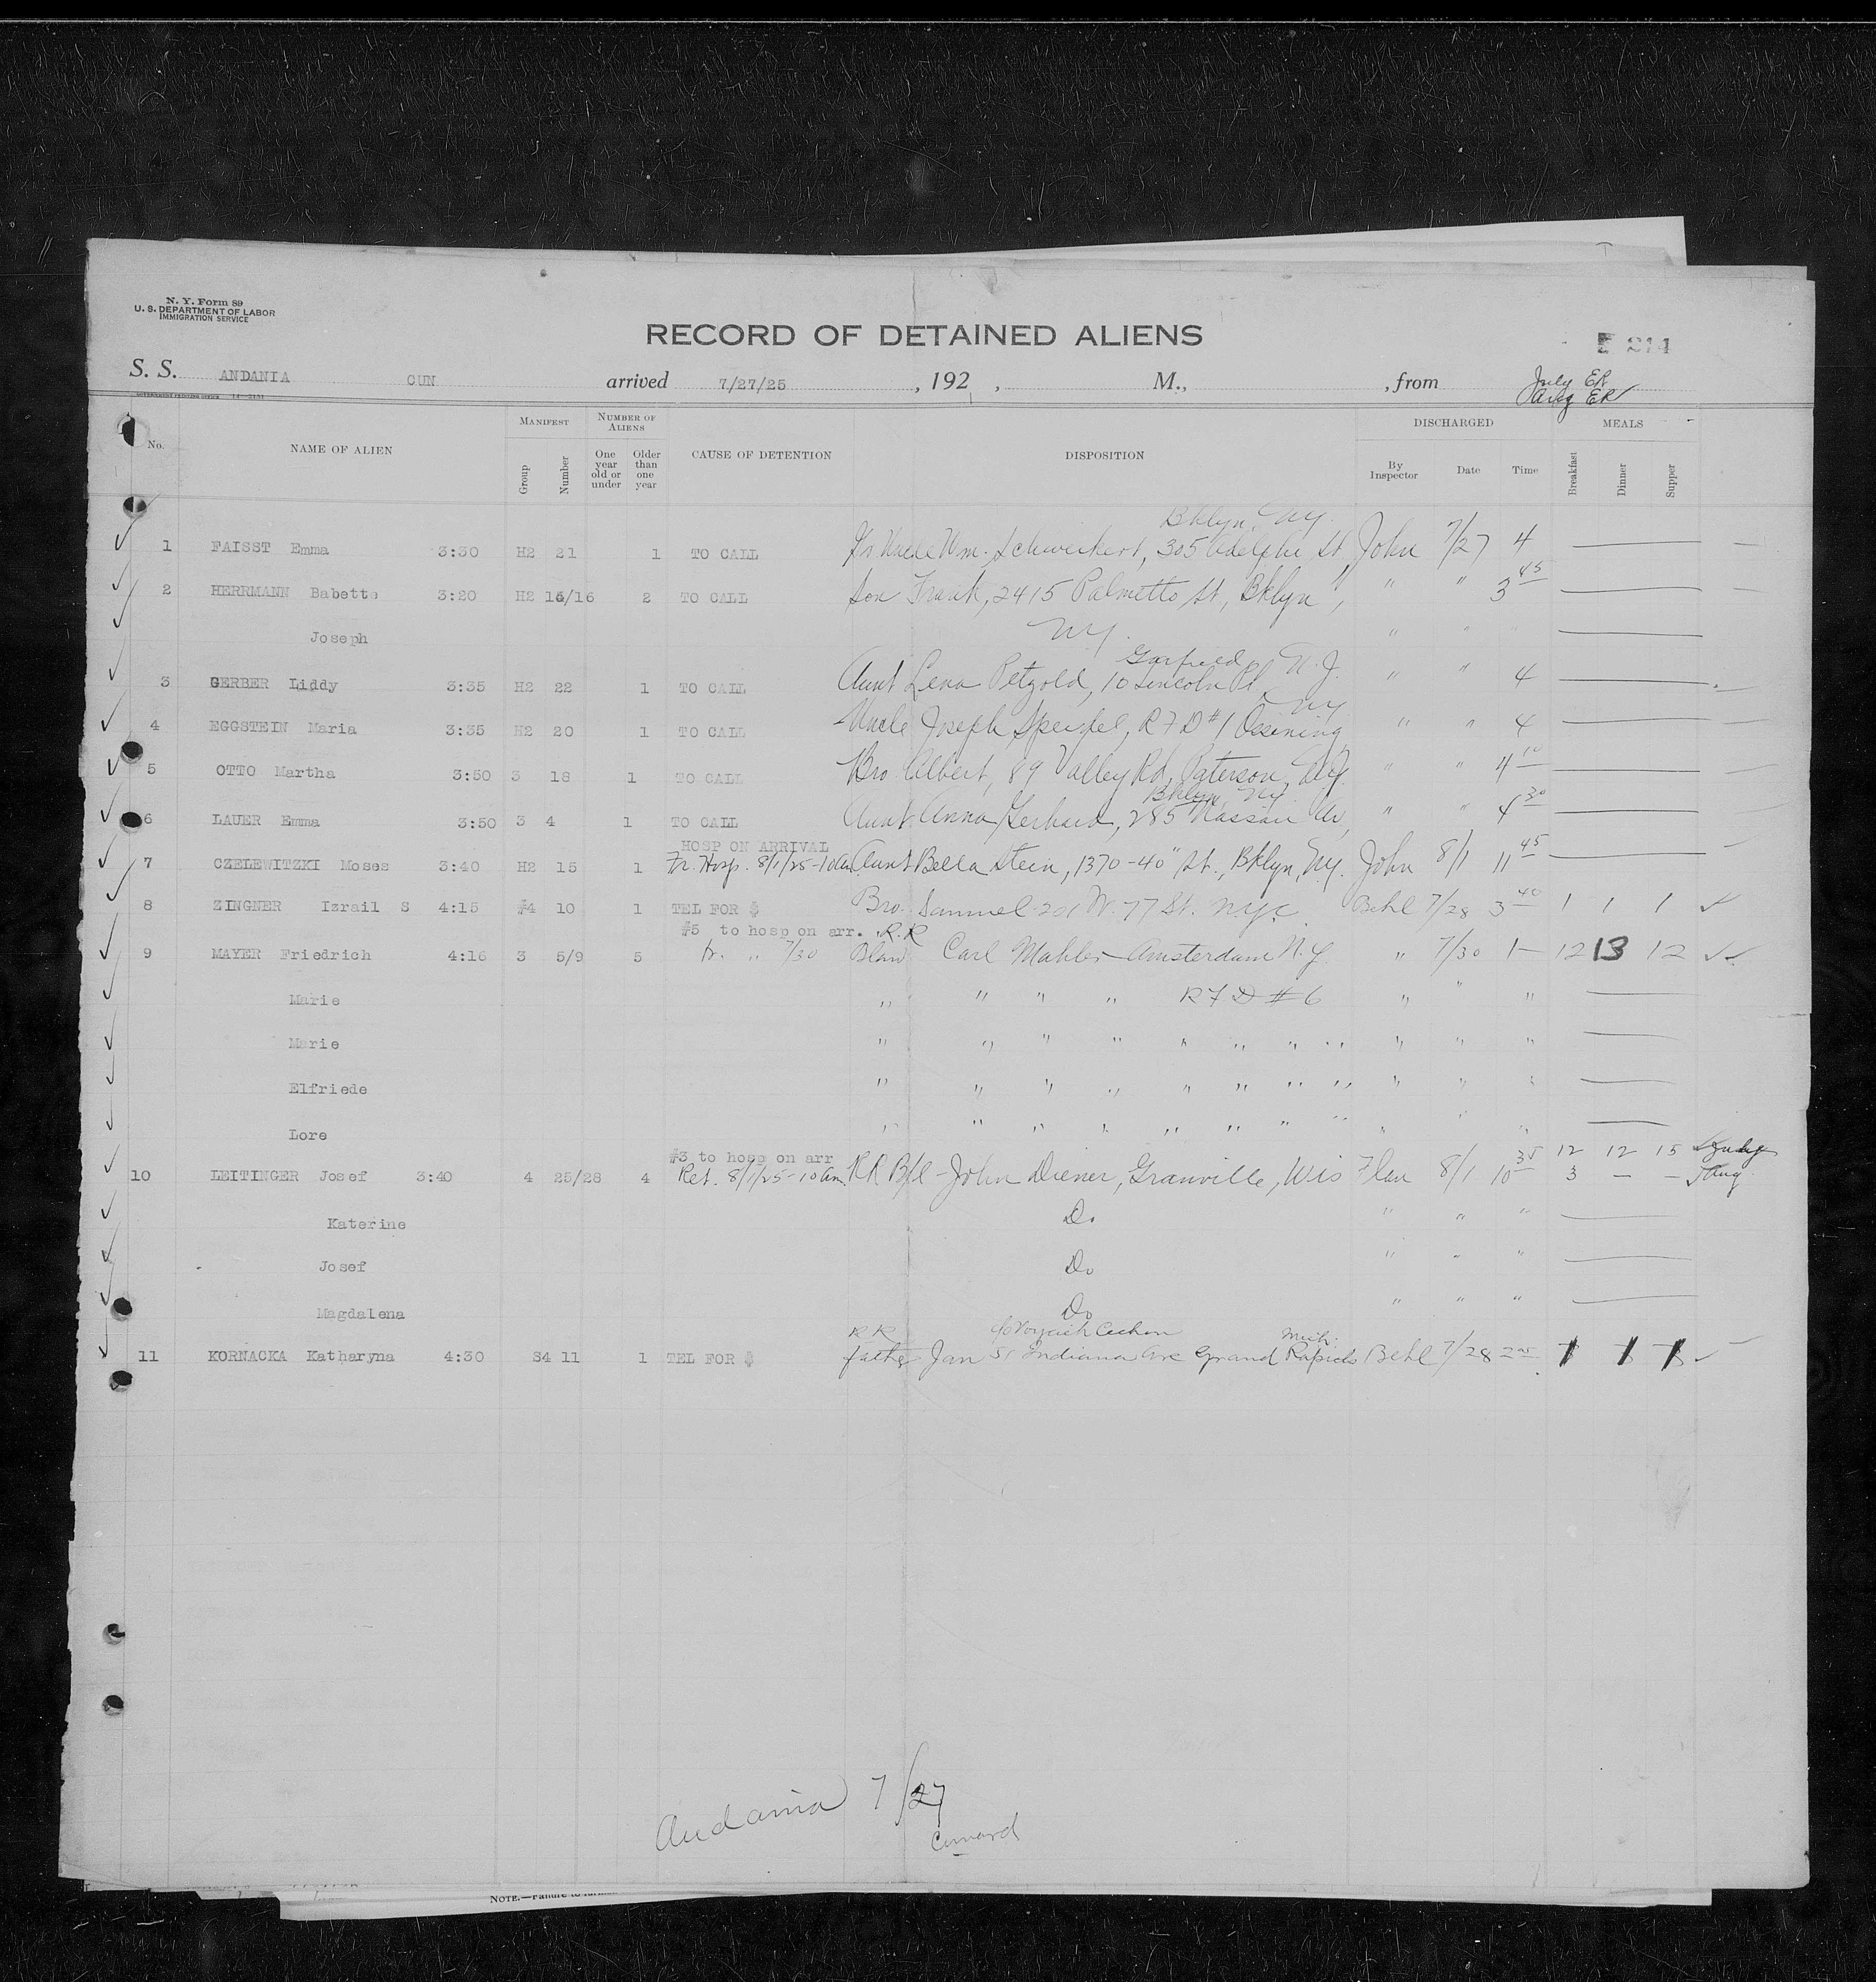 N. Y. Form 89
U. S. DEPARTMENT OF LABOR
IMMIGRATION SERVICE
RECORD OF DETAINED ALIENS
E 214
S. S. ANDANIA CUN arrived 7/27/25, 192 , M., , from July ER
Aug ER
No. NAME OF ALIEN MANIFEST Group Number NUMBER OF ALIENS One year old or under Older than one year CAUSE OF DETENTION DISPOSITION DISCHARGED By Inspector Date Time MEALS Breakfast Dinner Supper
Bklyn, NY.
1 FAISST Emma 3:30 H2 21 1 TO CALL Uncle Wm. Schweikert, 305 Adelphi St, John 7/27 4
2 HERRMANN Babette 3:20 H2 15/16 2 TO CALL Son Frank, 2415 Palmetto St, Bklyn, " " 3 45
Joseph NY. " "
Garfield N.J.
3 GERBER Liddy 3:35 H2 22 1 TO CALL Aunt Lena Petzold, 10 Lincoln Pl " " 4
NY
4 EGGSTEIN Maria 3:35 H2 20 1 TO CALL Uncle Joseph Speidel, RFD #1 Ossining " " 4
5 OTTO Martha 3:50 3 18 1 TO CALL Bro Albert, 89 Valley Rd, Paterson, NJ. " " 4 10
Bklyn, NY.
6 LAUER Emma 3:50 3 4 1 TO CALL Aunt Anna Gerhard, 285 Nassau Av, " " 4 30
HOSP ON ARRIVAL
7 CZELEWITZKI Moses 3:40 H2 15 1 Fr. Hosp. 8/1/25-10am Aunt Bella Stein, 1370-40" St., Bklyn, NY. John 8/1 11 45
8 ZINGNER Izrail S 4:15 #4 10 1 TEL FOR $ Bro. Samuel 201 W. 77 St. NYC Behl 7/28 3 40 1 1 1
#5 to hosp on arr. R.R
9 MAYER Friedrich 4:16 3 5/9 5 fr. " 7/30 Carl Mahler Amsterdam N.Y. " 7/30 1- 12 13 12
Marie " " " " RFD #6 " " "
Marie " " " " " " " " " " "
Elfriede " " " " " " " " " " "
Lore " " " " " " " " " " "
#3 to hosp on arr 12 12 15 July
10 LEITINGER Josef 3:40 4 25/28 4 Ret. 8/1/25-10am. RR B/l - John Diener, Granville, Wis Flan 8/1 10 35 3 - - Aug
Katerine Do " " "
Josef Do " " "
Magdalena Do " " "
RR Mich.
11 KORNACKA Katharyna 4:30 S4 11 1 TEL FOR $ father Jan 51 Indiana Ave Grand Rapids Behl 7/28 1 1 1
Andania 7/27
Cunard
NOTE.—Failure to